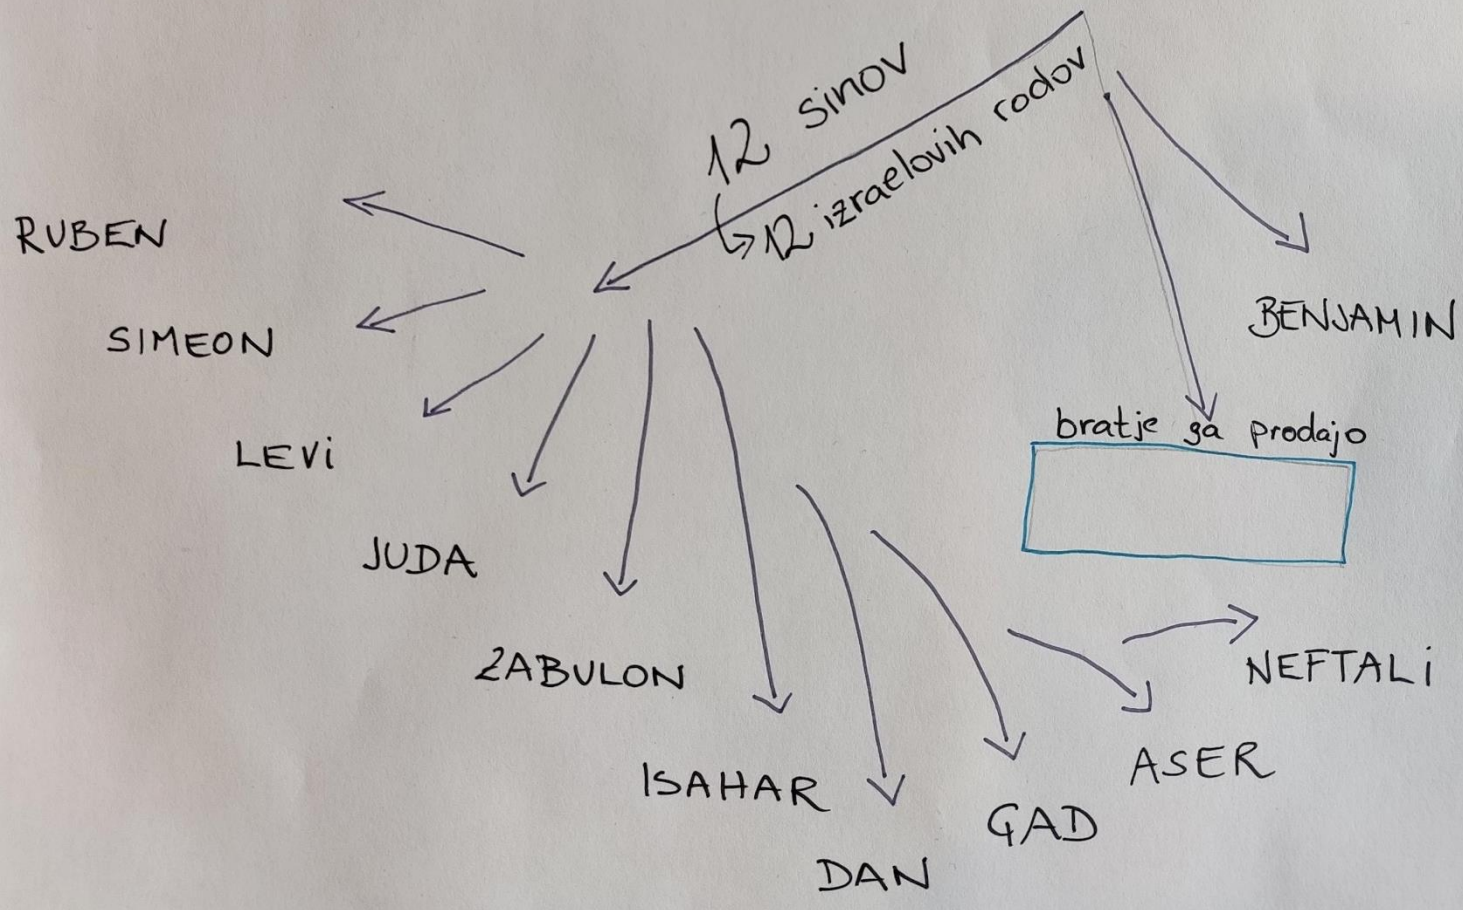 12 sinov
12 izraelovih rodov
RUBEN
SIMEON
LEVi
JUDA
ZABULON
ISAHAR
DAN
GAD
ASER
NEFTALi
bratje ga prodajo
BENJAMIN